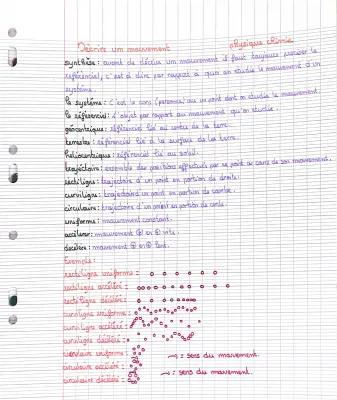 Décrire un mouvement physique chimie
synthèse : avant de décrire un mouvement il faut toujours préciser le
référentiel, c'est à dire par rapport à quoi on étudie le mouvement d'un
système.
le système : c'est le corps (personne) ou un point dont on étudie le mouvement.
le référentiel : l'objet par rapport au mouvement qu'on étudie.
géocentrique : référentiel lié au centre de la terre.
terrestre : référentiel lié à la surface de la terre.
héliocentrique : référentiel lié au soleil.
trajectoire : ensemble des positions effectués par un point au cours de son mouvement.
rectiligne : trajectoire d'un point en portion de droite.
curviligne : trajectoire d'un point en portion de courbe.
circulaire : trajectoire d'un point en portion de cercle.
uniforme : mouvement constant.
accélérer : mouvement ⊕ en ⊕ vite.
décélérer : mouvement ⊕ en ⊕ lent.
Exemple :
rectiligne uniforme =
rectiligne accéléré =
rectiligne décéléré =
curviligne uniforme =
curviligne accéléré =
curviligne décéléré =
circulaire uniforme = → = sens du mouvement.
circulaire accéléré =
→ = sens du mouvement.
circulaire décéléré =